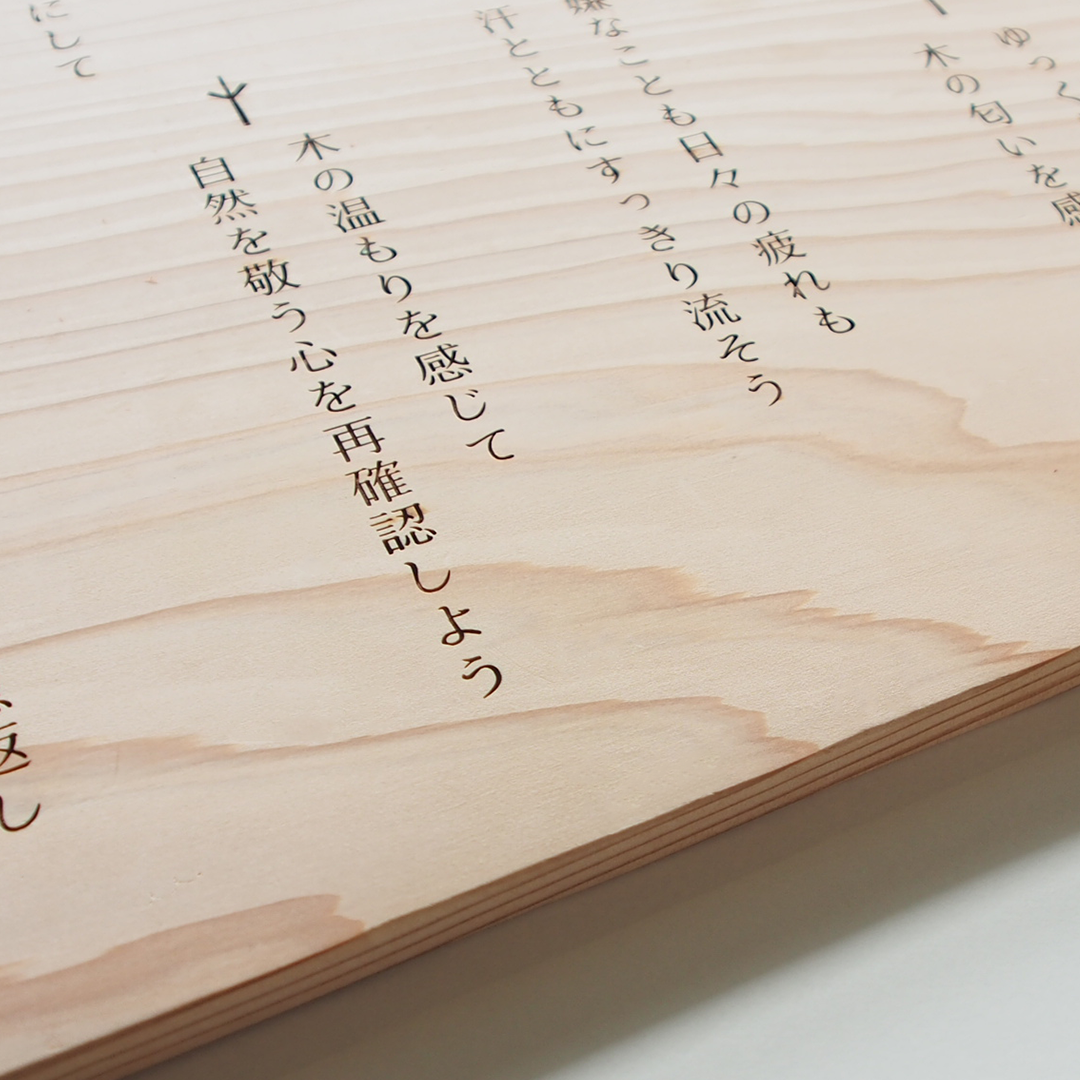 ゆっく
木の匂いを感
嫌なことも日々の疲れも
汗とともにすっきり流そう
木の温もりを感じて
自然を敬う心を再確認しよう
にして
返し